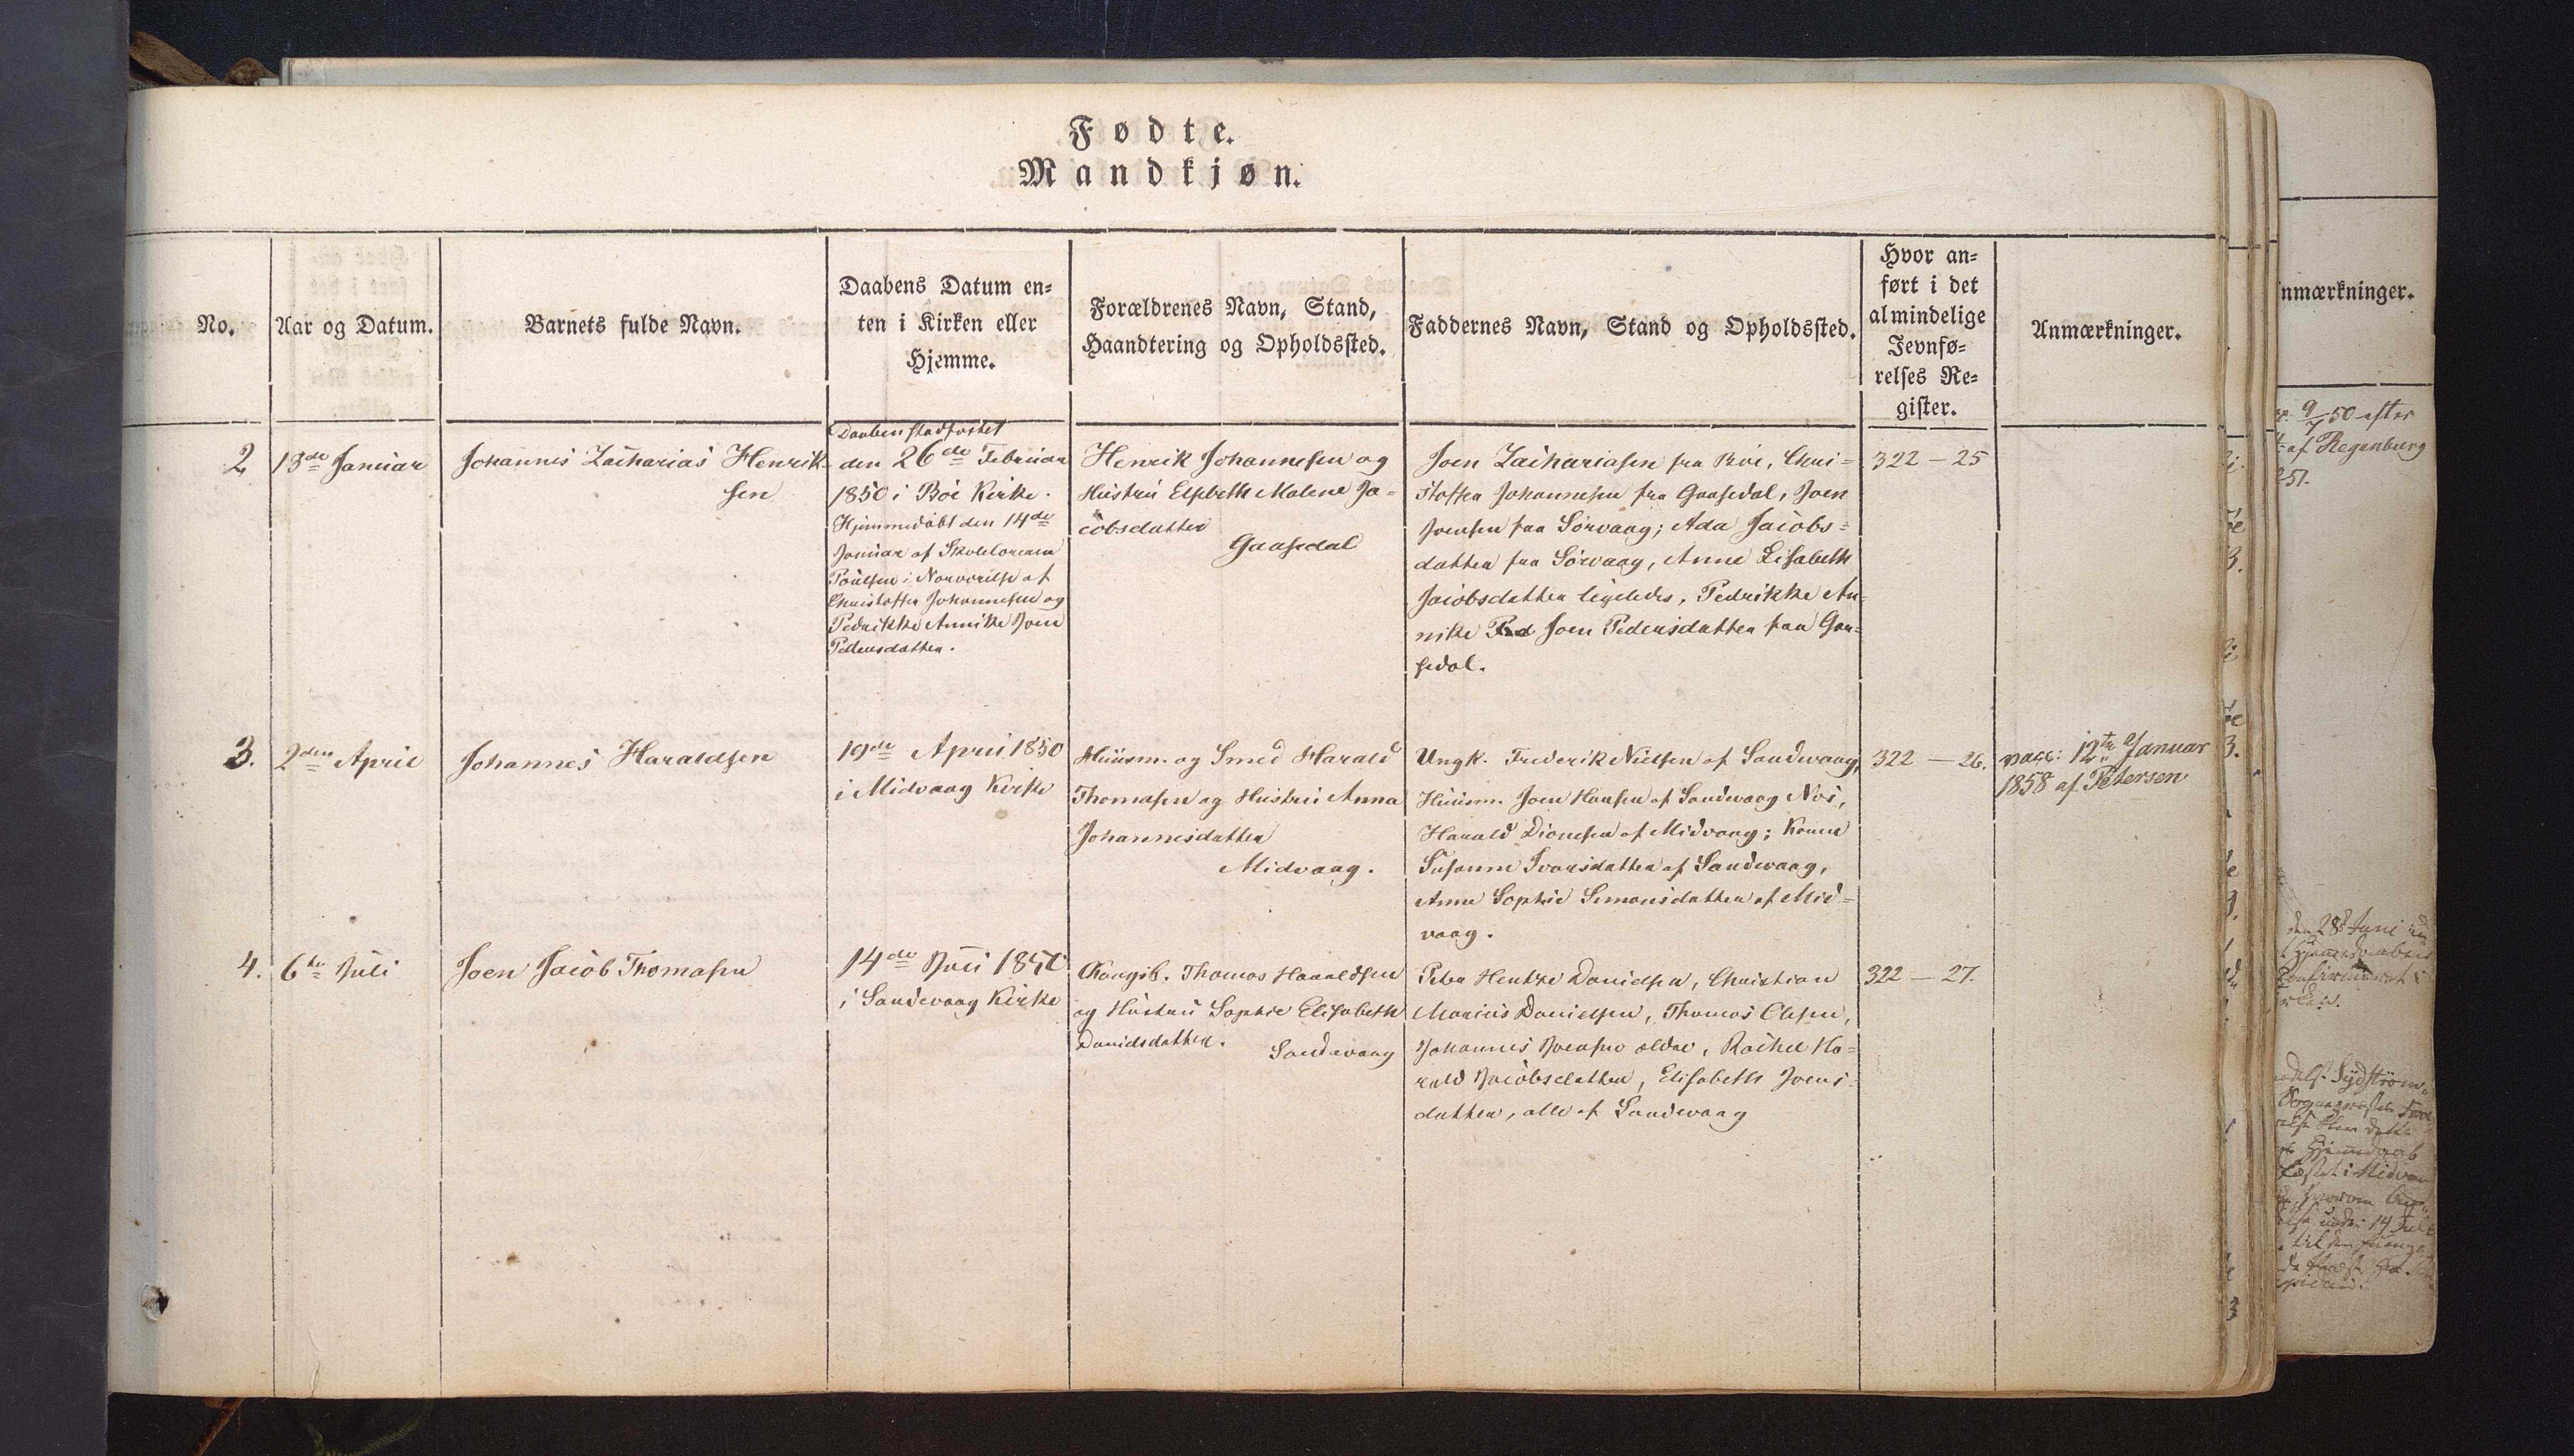 Fødte.
Mandkjøn.
No.
Aar og Datum.
Barnets fulde Navn.
Daabens Datum en=
ten i Kirken eller
Hjemme.
Forældrenes Navn, Stand,
Haandtering og Opholdssted.
Faddernes Navn, Stand og Opholdssted.
Hvor an=
ført i det
almindelige
Jevnfø=
relses Re=
gister.
Anmærkninger.
2
13de Januar
Johannes Zacharias Henrik-
sen
Daaben stadfæstet
den 26de Februar
1850 i Bøe Kirke.
Hjemmedøbt den 14de
Januar af Skolelæreren
Poulsen i Nærværelse af
Christoffer Johannesen og
Pedrikke Annike Joen
Pedersdatter.
Henrik Johannesen og
Hustru Elsebeth Malene Ja-
cobsdatter
Gaasedal
Joen Zachariasen fra Bøe, Chri=
stoffer Johannesen fra Gaasedal, Joen
Joensen fra Sørvaag; Ada Jacobs=
datter fra Sørvaag, Anne Lisabeth
Jacobsdatter ligeledes, Pedrikke An-
nike Joen Pedersdatter fra Gaa-
sedal.
322 — 25
3.
2den April
Johannes Haraldsen
19de April 1850
i Midvaag Kirke
Huusm. og Smed Harald
Thomasen og Hustru Anna
Johannesdatter
Midvaag.
Ungk. Frederik Nielsen af Sandevaag,
Huusm. Joen Hansen af Sandevaag Næs,
Harald Dionesen af Midvaag; Konen
Susanne Ivarsdatter af Sandevaag,
Anne Sophie Simonsdatter af Mid=
vaag.
322 — 26.
vacc: 12te Januar
1858 af Petersen
4.
6te Juli
Joen Jacob Thomasen
14de Juli 1850
i Sandevaag Kirke
Kongsb. Thomas Haraldsen
og Hustru Sophie Elisabeth
Danielsdatter.
Sandevaag
Peter Hentze Danielsen, Christian
Marius Danielsen, Thomas Olesen,
Johannes Joensen ældre, Rachel Ha=
rald Jacobsdatter, Elisabeth Joens-
datter, alle af Sandevaag
322 — 27.
nmærkninger.
9/7 50 efter
af Regenburg
251.
den 28de Juni
14 Juli